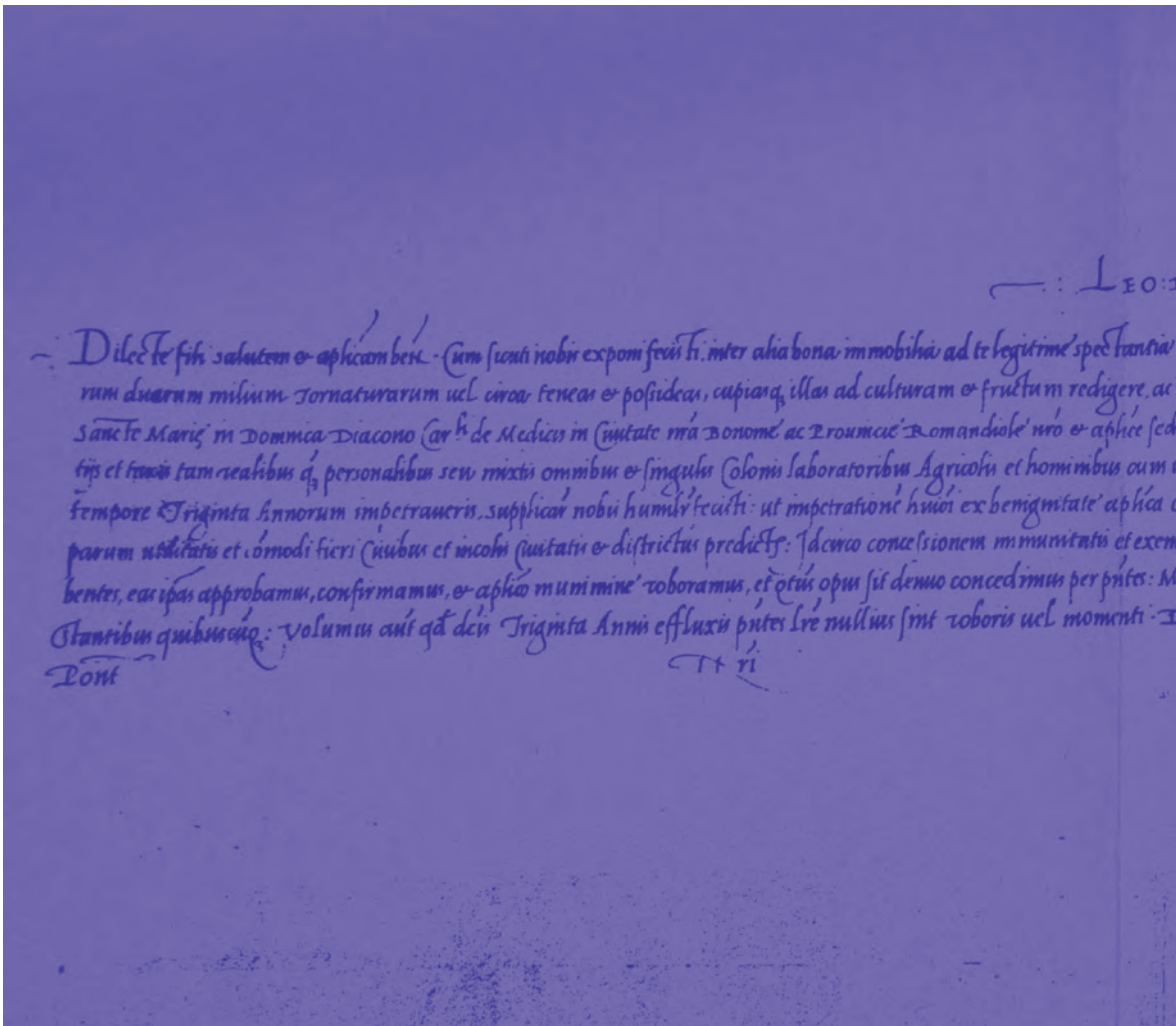 LEO:
Dilecte fili salutem & aplicam ben. Cum sicuti nobis exponi fecisti, inter alia bona immobilia ad te legitime spectantia
rum duarum milium Tornaturarum uel circa teneas & possideas, cupiasq; illas ad culturam & fructum redigere, ac
Sancte Marie in Domnica Diacono Car. de Medicis in Ciuitate nra Bononie ac Prouincie Romandiole nro & aplice sed
tijs et taxis tam realibus q; personalibus seu mixtis omnibus & singulis Colonis laboratoribus Agricolis et hominibus cum
tempore Triginta Annorum impetraueris, supplicar nobis humilr fecisti: ut impetrationi huioi ex benignitate aplica
parum utilitatis et comodi fieri Ciuibus et incolis Ciuitatis & districtus predicte: Idcirco concessionem immunitatis et exem
bentes, eas ipas approbamus, confirmamus, & aplico munimine roboramus, et opus sit denuo concedimus per pntes: M
Ostantibus quibuscunq;: Volumus aut qd dcis Triginta Annis effluxis pntes lre nullius sint roboris uel momenti.
Pont